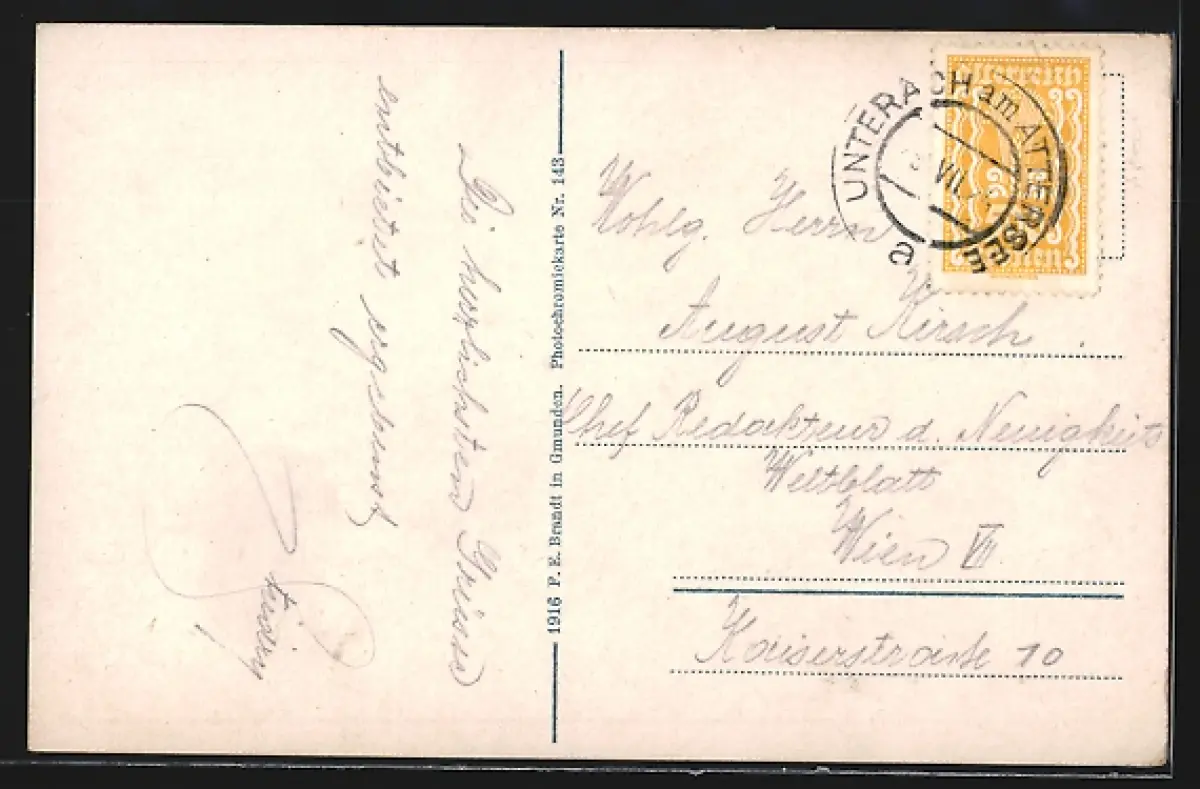 Die herzlichsten Grüsse
entbietet ergebenst
1916 P. E. Brandt in Gmunden. Photochromiekarte Nr. 143
österreich
UNTERACH am ATTERSEE
VII.
a
Wohlg. Herrn
August Kirsch.
Chef Redakteur d. Neuigkeits
Weltblatt
Wien VII
Kaiserstraße 10